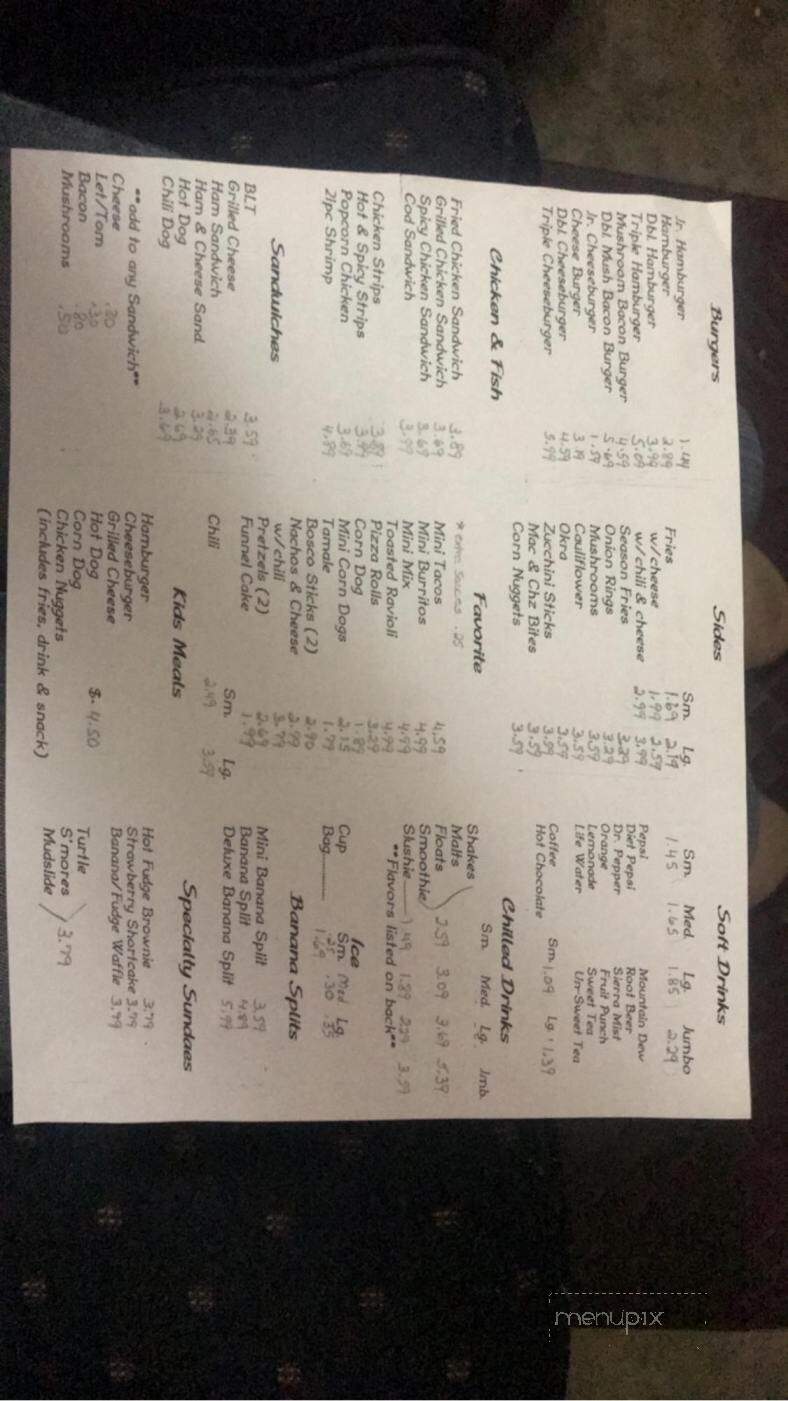 Burgers
Jr. Hamburger 1.49
Hamburger 2.89
Dbl. Hamburger 3.99
Triple Hamburger 5.09
Mushroom Bacon Burger 4.59
Dbl. Mush Bacon Burger 5.69
Jr. Cheeseburger 1.59
Cheese Burger 3.19
Dbl. Cheeseburger 4.59
Triple Cheeseburger 5.99
Chicken & Fish
Fried Chicken Sandwich 3.89
Grilled Chicken Sandwich 3.69
Spicy Chicken Sandwich 3.69
Cod Sandwich 3.99
Chicken Strips 3.89
Hot & Spicy Strips 3.99
Popcorn Chicken 3.69
21pc Shrimp 4.99
Sandwiches
BLT 3.59
Grilled Cheese 2.39
Ham Sandwich 2.65
Ham & Cheese Sand. 3.29
Hot Dog 2.69
Chili Dog 3.69
**add to any Sandwich**
Cheese .20
Let/Tom .30
Bacon .80
Mushrooms .50
Sides
Sm. Lg.
Fries 1.69 2.19
w/cheese 1.99 2.59
w/chili & cheese 2.99 3.99
Season Fries 3.29
Onion Rings 3.29
Mushrooms 3.59
Cauliflower 3.59
Okra 3.59
Zucchini Sticks 3.59
Mac & Chz Bites 3.59
Corn Nuggets 3.59
Favorite
* extra Sauces .25
Mini Tacos 4.59
Mini Burritos 4.99
Mini Mix 4.99
Toasted Ravioli 4.99
Pizza Rolls 3.29
Corn Dog 1.89
Mini Corn Dogs 2.15
Tamale 1.79
Bosco Sticks (2) 2.90
Nachos & Cheese 2.99
w/chili 3.79
Pretzels (2) 2.69
Funnel Cake 1.99
Sm. Lg.
Chili 2.49 3.59
Kids Meals
Hamburger
Cheeseburger
Grilled Cheese
Hot Dog $ 4.50
Corn Dog
Chicken Nuggets
(includes fries, drink & snack)
Soft Drinks
Sm. Med. Lg. Jumbo
1.45 1.65 1.85 2.29
Pepsi Mountain Dew
Diet Pepsi Root Beer
Dr. Pepper Sierra Mist
Orange Fruit Punch
Lemonade Sweet Tea
Life Water Un-Sweet Tea
Coffee
Hot Chocolate Sm 1.09 Lg 1.39
Chilled Drinks
Sm. Med. Lg. Jmb.
Shakes
Malts
Floats 2.59 3.09 3.69 5.39
Smoothie
Slushie 1.49 1.89 2.29 3.59
**Flavors listed on back**
Ice
Sm. Med Lg.
Cup .25 .30 .35
Bag 1.69
Banana Splits
Mini Banana Split 3.59
Banana Split 4.89
Deluxe Banana Split 5.99
Specialty Sundaes
Hot Fudge Brownie 3.79
Strawberry Shortcake 3.99
Banana/Fudge Waffle 3.99
Turtle
S'mores 3.79
Mudslide
menupix